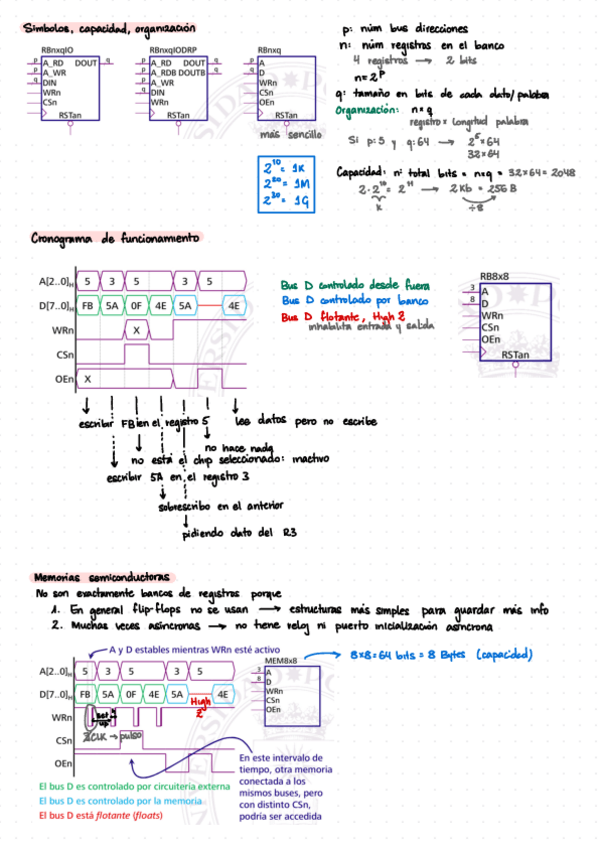 Símbolos, capacidad, organización
RBnxqIO
p A_RD DOUT q
p A_WR
q DIN
WRn
CSn
RSTan
RBnxqIODRP
p A_RD DOUT q
p A_RDB DOUTB q
p A_WR
q DIN
WRn
CSn
RSTan
RBnxq
p A
q D
WRn
CSn
OEn
RSTan
más sencillo
p: núm bus direcciones
n: núm registros en el banco
4 registros → 2 bits
n=2^p
q: tamaño en bits de cada dato/palabra
Organización: n×q
registro × longitud palabra
Si p=5 y q=64 → 2^5×64
32×64
2^10 = 1K
2^20 = 1M
2^30 = 1G
Capacidad: nº total bits = n×q = 32×64 = 2048
2·2^10 = 2^11 → 2Kb = 256B
K
÷8
Cronograma de funcionamiento
A[2..0]H 5 3 5 3 5
D[7..0]H FB 5A 0F 4E 5A 4E
WRn X
CSn
OEn X
Bus D controlado desde fuera
Bus D controlado por banco
Bus D flotante, High Z
inhabilita entrada y salida
RB8x8
3 A
8 D
WRn
CSn
OEn
RSTan
escribir FB en el registro 5
lee datos pero no escribe
no hace nada
no está el chip seleccionado: inactivo
escribir 5A en el registro 3
sobrescribo en el anterior
pidiendo dato del R3
Memorias semiconductoras
No son exactamente bancos de registros porque
1. En general flip-flops no se usan → estructuras más simples para guardar más info
2. Muchas veces asíncronas → no tiene reloj ni puerto inicialización asíncrona
A y D estables mientras WRn esté activo
A[2..0]H 5 3 5 3 5
D[7..0]H FB 5A 0F 4E 5A High Z 4E
WRn
set up
CLK → pulso
CSn
OEn
MEM8x8
3 A
8 D
WRn
CSn
OEn
8×8=64 bits = 8 Bytes (capacidad)
En este intervalo de
tiempo, otra memoria
conectada a los
mismos buses, pero
con distinto CSn,
podría ser accedida
El bus D es controlado por circuitería externa
El bus D es controlado por la memoria
El bus D está flotante (floats)